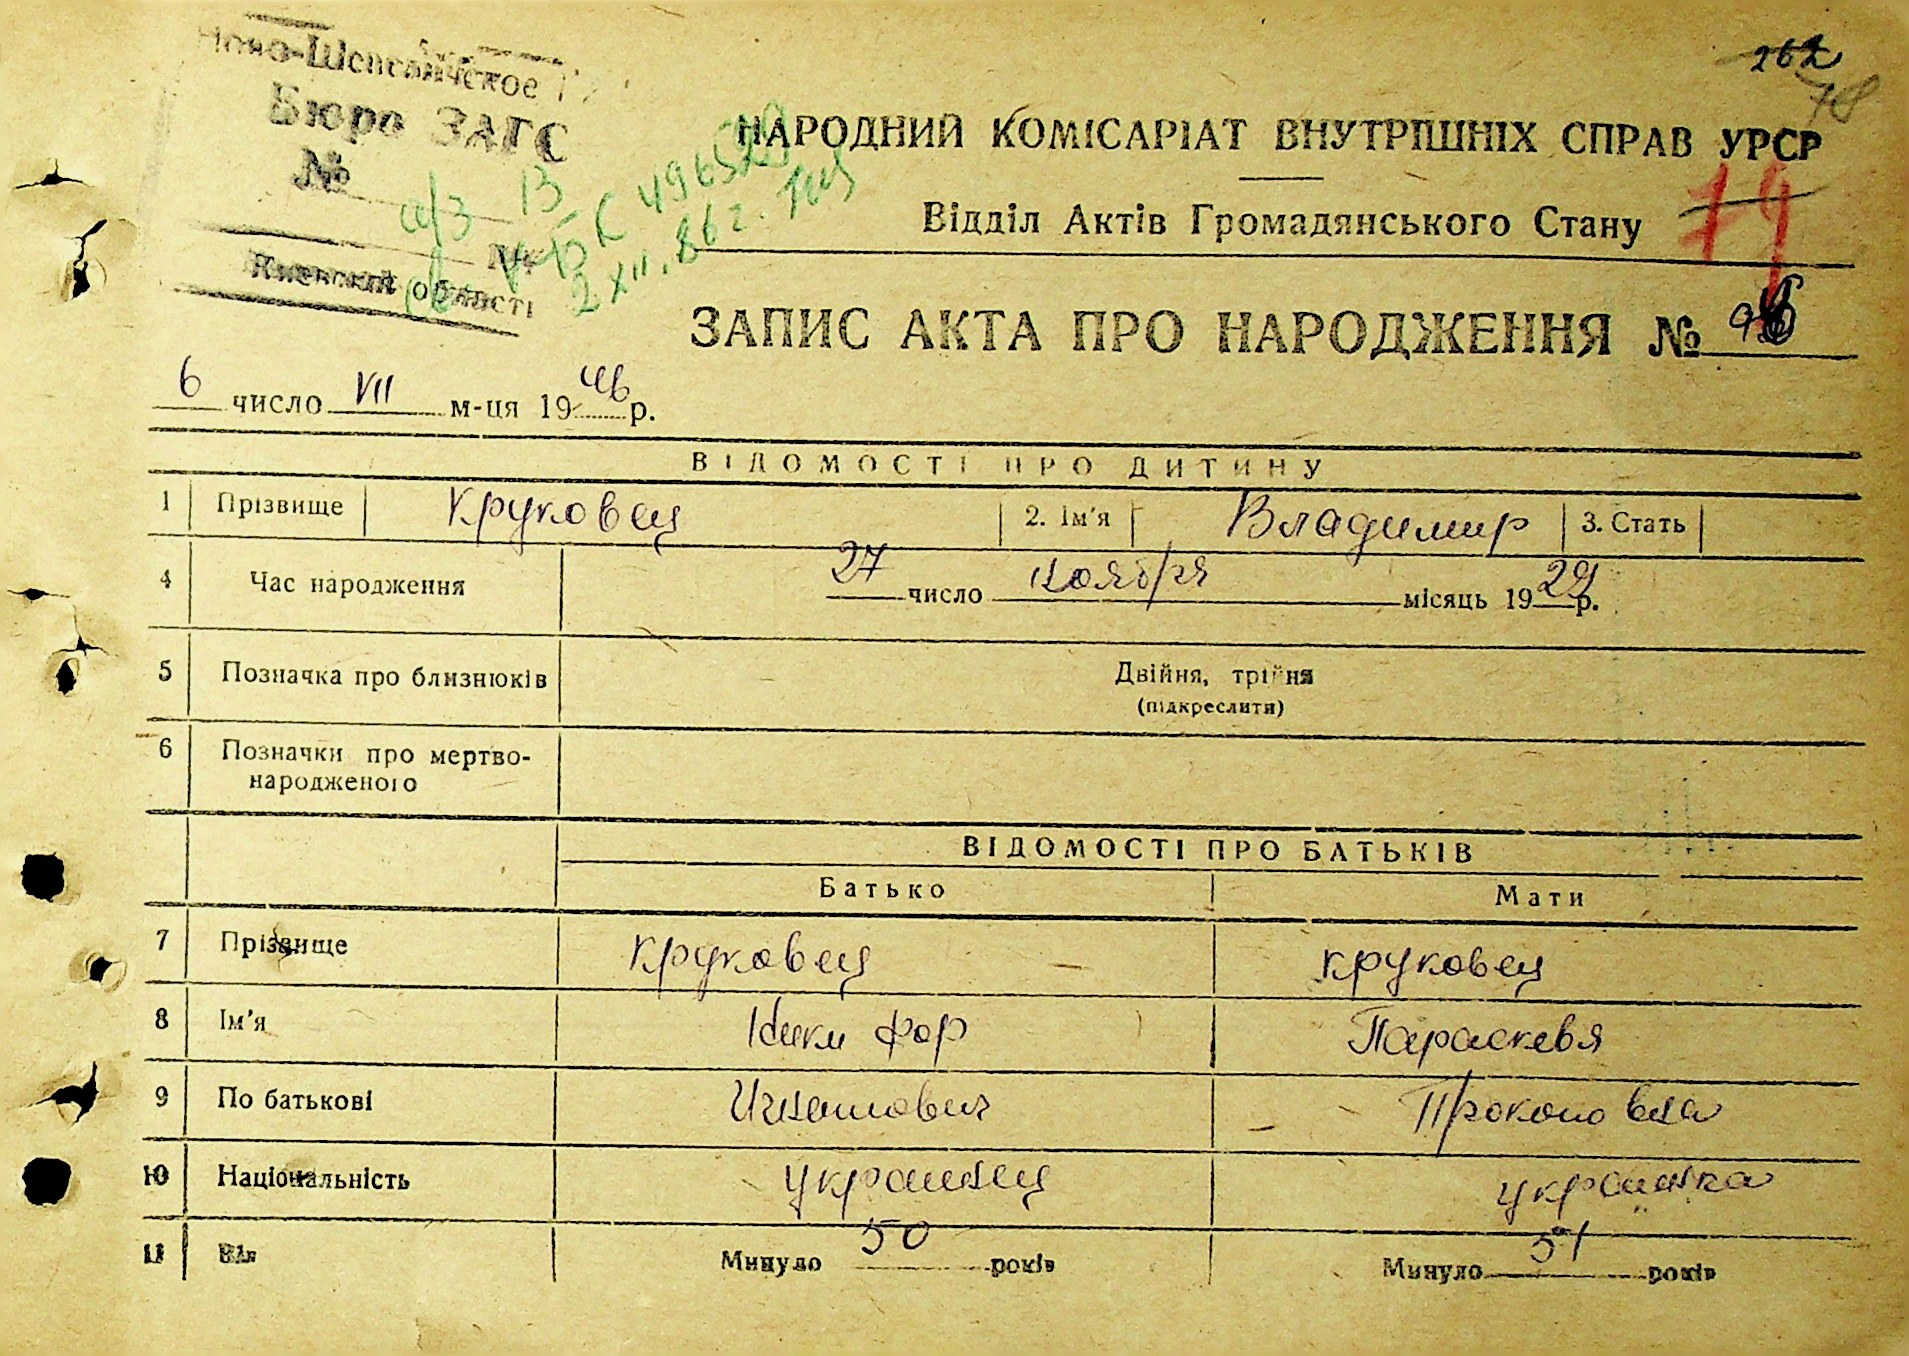 262
78
Ново-Шепеличское
Бюро ЗАГС
№
НАРОДНИЙ КОМІСАРІАТ ВНУТРІШНІХ СПРАВ УРСР
79
Відділ Актів Громадянського Стану
області
2 XII. 86 г.
ЗАПИС АКТА ПРО НАРОДЖЕННЯ №
6 число VII м-ця 1946 р.
ВІДОМОСТІ ПРО ДИТИНУ
1 Прізвище Круковец 2. Ім'я Владимир 3. Стать
4 Час народження 27 число ноября місяць 1929 р.
5 Позначка про близнюків Двійня, трійня
(підкреслити)
6 Позначки про мертво-
народженого
ВІДОМОСТІ ПРО БАТЬКІВ
Батько Мати
7 Прізвище Круковец Круковец
8 Ім'я Никифор Параскевя
9 По батькові Игнатович Прокоповна
10 Національність украинец украинка
11 Вік Минуло 50 років Минуло 51 років